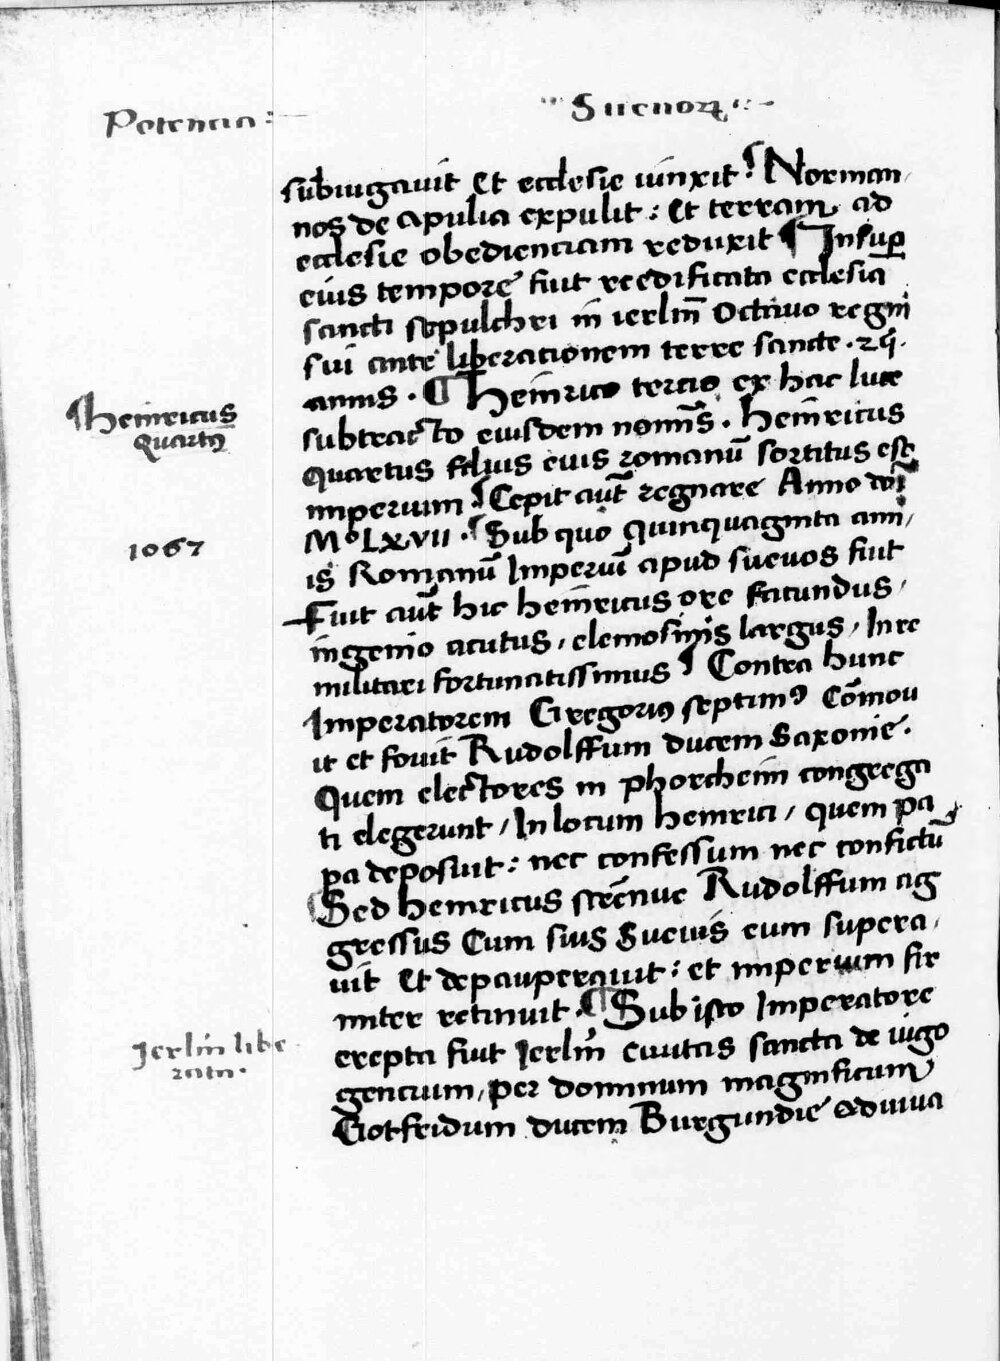 Potencia:
Sueuoꝝ
subiugauit Et ecclesie iūnxit? Norman,
nos de apulia expulit: Et terram ad
ecclesie obedienciam reduxit ¶ Insuꝑ
eius tempore fuit reedificata ecclesia
sancti sepulchri in ierlm̄ Octauo regni
sui ante liberationem terre sancte
annis. ¶ Heinrico tercio ex hac luce
subtracto eiusdem nomīs. Heinricus
Heinricus
Quartꝰ
Quartus filius euis romanū sortitus est
imperium? Cepit aut̄ regnare Anno dn̄i
MoLxvii. Sub quo quinquaginta ann,
1067
is Romanū Imperiū apud sueuos fuit
Fuit aut̄ hic heinricus ore facundus,
ingenio acutus, elemosinis largus, In re
militari fortunatissimus? Contra hunc
Imperatorem Gregoriꝰ septimꝰ Cōmou
it et fouit Rudolffum ducem Saxonie.
Quem electores in phorcheim congrega
ti elegerunt, In locum heinrici, quem pa
pa deposuit: nec confessum nec confictū
Sed heinricus strēnue Rudolffum ag
gressus Cum suis Sueuis eum supera,
uit Et depauperauit: et imperium fir
miter retinuit. ¶ Sub isto Imperatore
erepta fuit Ierlm̄ ciuitas sancta de iugo
Jerlm̄ libe
rata.
gencium, per dominum magnificum
Gotfridum ducem Burgundie &diuua